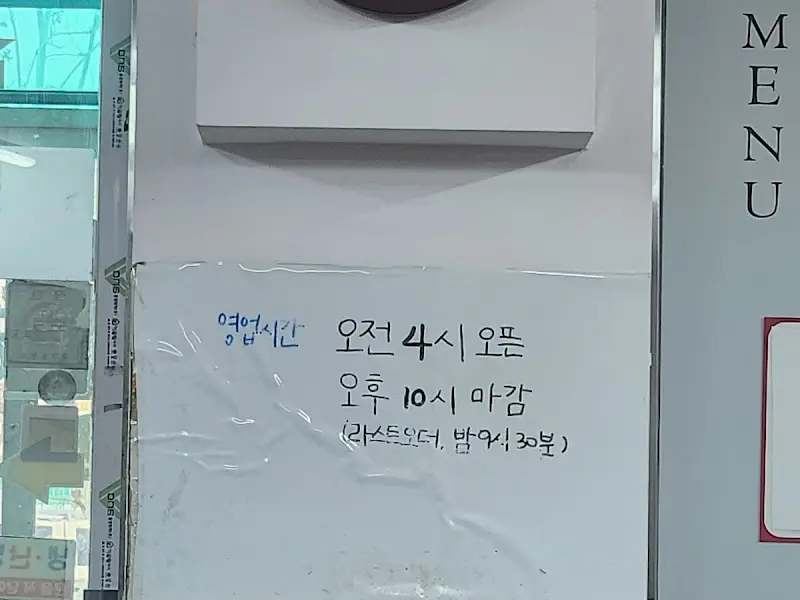 MENU
영업시간 오전 4시 오픈
오후 10시 마감
(라스트오더, 밤 9시 30분)